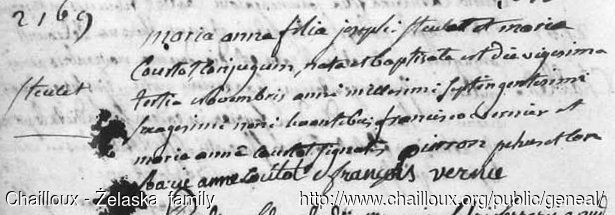 2169
maria anna filia josephi steulet et maria
Courtot conjugum, nata et baptisata est die vigesima
steulet
tertia novembris anni millesimi septingentesimi
sexagesimi noni levantibus francisco vernier et
maria anna Courtot signatis
marie anne Coutot françois vernie
Chailloux - Żelaska family http://www.chailloux.org/public/geneal/